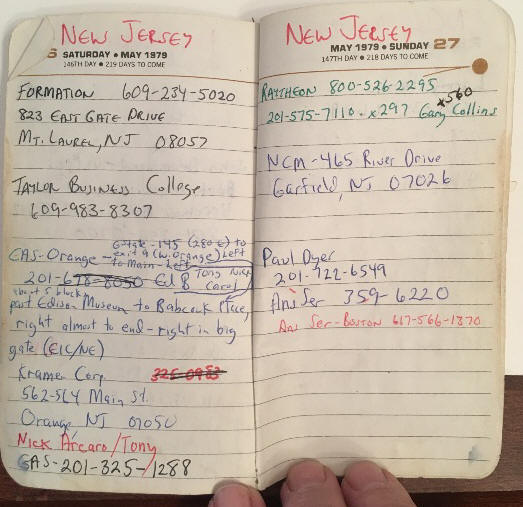 NEW JERSEY
6 SATURDAY • MAY 1979
146TH DAY • 219 DAYS TO COME
FORMATION 609-234-5020
823 EAST GATE DRIVE
MT. LAUREL, NJ 08057
TAYLOR BUSINESS College
609-983-8307
G-State - 145 (280 E) to
GAS-Orange - exit 9 (W. Orange) Left
to Main - Left
201-678-8050 Ed B Tony Nick Carol
about 5 blocks
past Edison Museum to Babcock Place,
right almost to end - right in big
gate (EIC/NE)
Kramer Corp. 325-0983
562-564 Main St.
Orange, NJ 07050
Nick Arcaro/Tony
GAS-201-325-1288
NEW JERSEY
MAY 1979 • SUNDAY 27
147TH DAY • 218 DAYS TO COME
RAYTHEON 800-526-2295
x560
201-575-7110 . x297 Gary Collins
NCM - 465 River Drive
Garfield, NJ 07026
Paul Dyer
201-722-6549
Ans Ser 359-6220
Ans Ser-Boston 617-566-1870